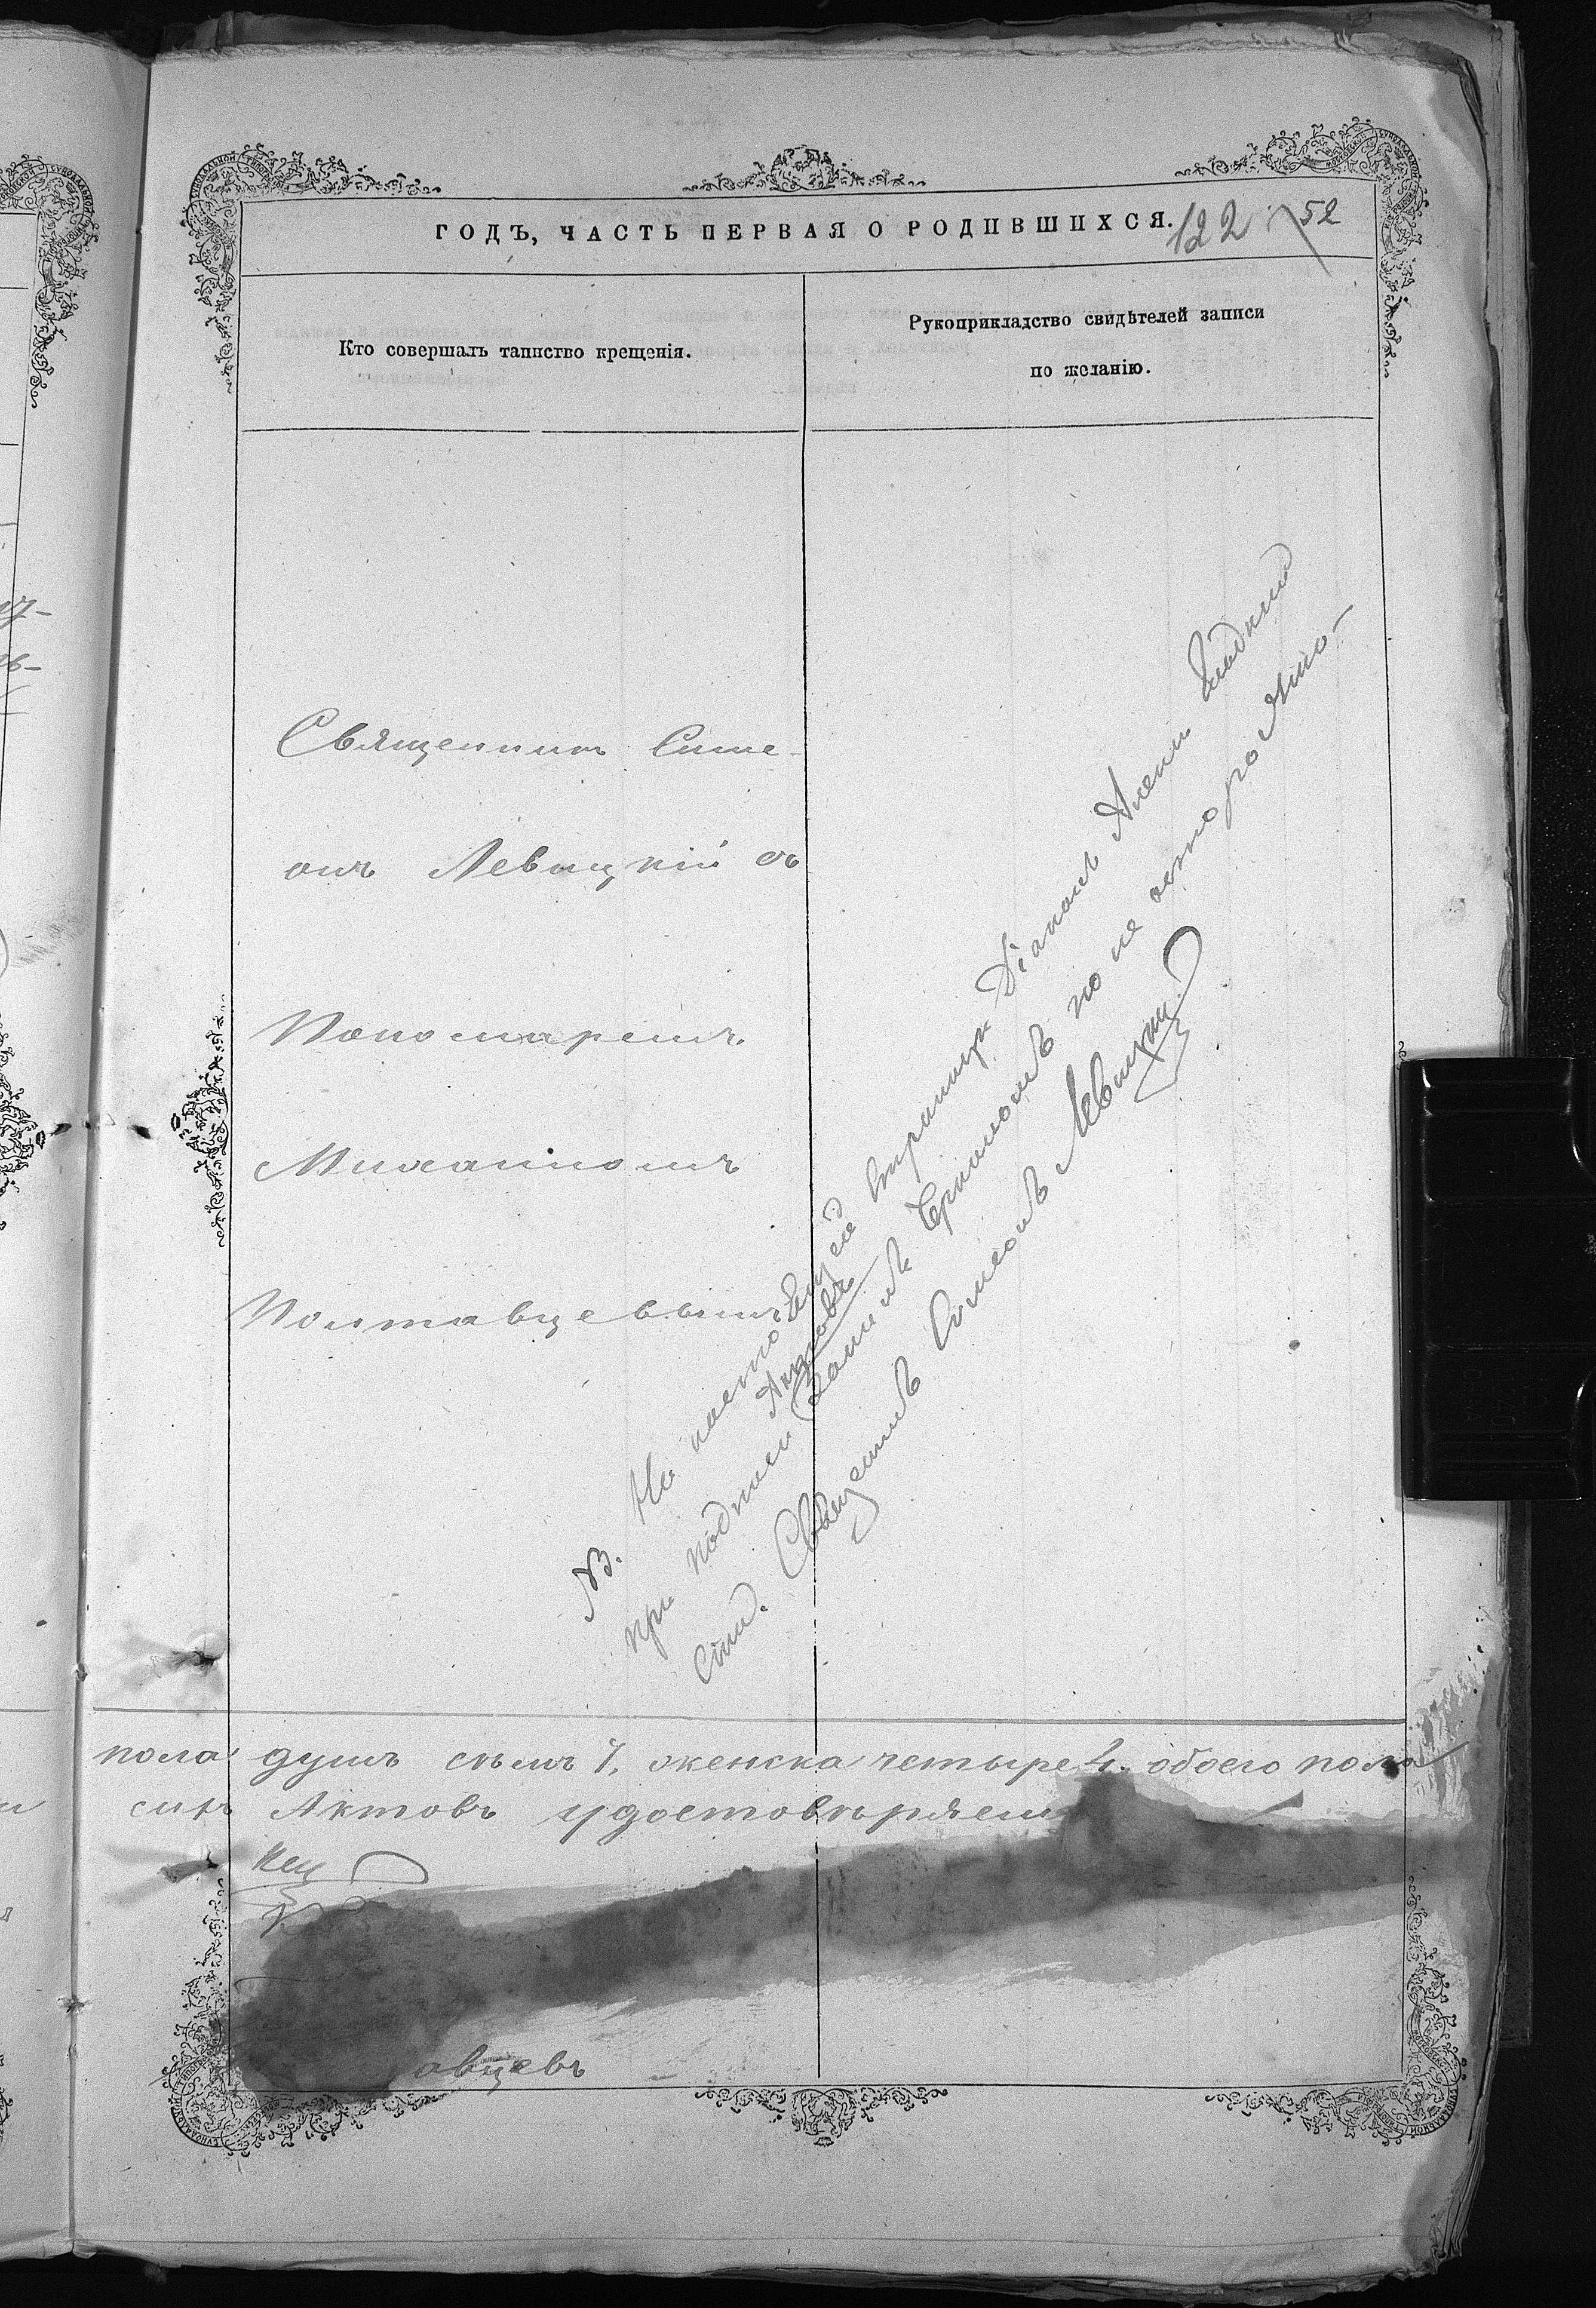 ГОДЪ, ЧАСТЬ ПЕРВАЯ О РОДИВШИХСЯ.
122 52
Кто совершалъ таинство крещенія.
Рукоприкладство свидѣтелей записи
по желанію.
Священникъ Симе-
онъ Левицкій съ
Пономаремъ
Михаиломъ
Полтавцевымъ
NB. На настоящей страницѣ Діаконъ
при подписи Актовъ чернилом но не осторожно-
стію. Священникъ Симеонъ Левицкій
пола душъ семь 7, женска четыре 4. обоего пола
сихъ Актовъ удостовѣряемъ
овцевъ